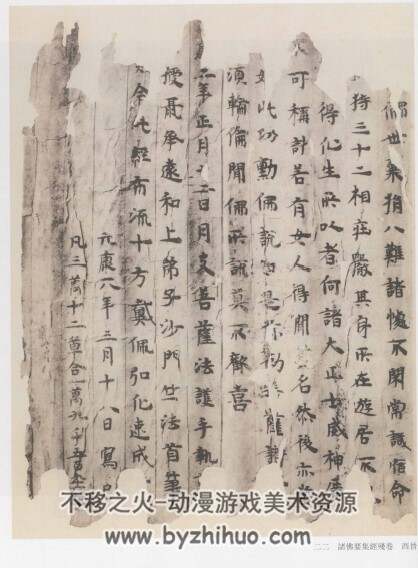 世八難諸懅不閑常識宿命
持三十二相莊嚴其身所在遊居不
得化生所以者何諸大正士威神
可稱計若有女人得聞名然後亦
如此功勳佛說如是
須輪倫聞佛所說莫不歡喜
二年正月十二日月支菩薩法護手執
授聶承遠和上弟子沙門竺法首筆
令此經布流十方戴佩弘化速成
元康六年三月十八日寫已
凡三萬十二章合一萬九千五百
不移之火-动漫游戏美术资源
www.byzhihuo.com
二二 諸佛要集經殘卷 西晉